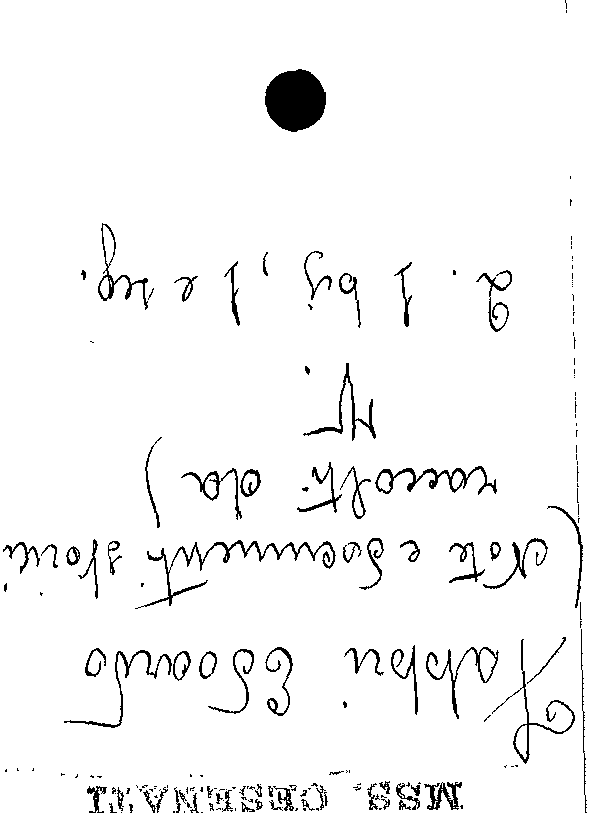 MSS. CESENATI
Fabbri Edoardo
(Note e documenti storici
raccolti da)
1 bis, 1 e seg.